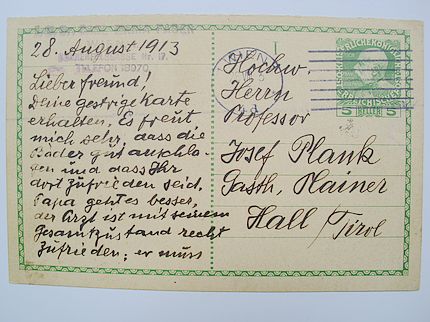 28. August 1913
Nr. 17.
TELEFON
Lieber Freund!
Deine gestrige Karte
erhalten. Es freut
mich sehr, dass die
Bäder gut anschla-
gen und dass Ihr
dort zufrieden seid.
Papa geht es besser,
der Arzt ist mit seinem
Gesamtzustand recht
zufrieden; er muss
I
WIEN
5 HELLER 5
Hochw.
Herrn
Professor
Josef Plank
Gasth. Mainer
Hall / Tirol